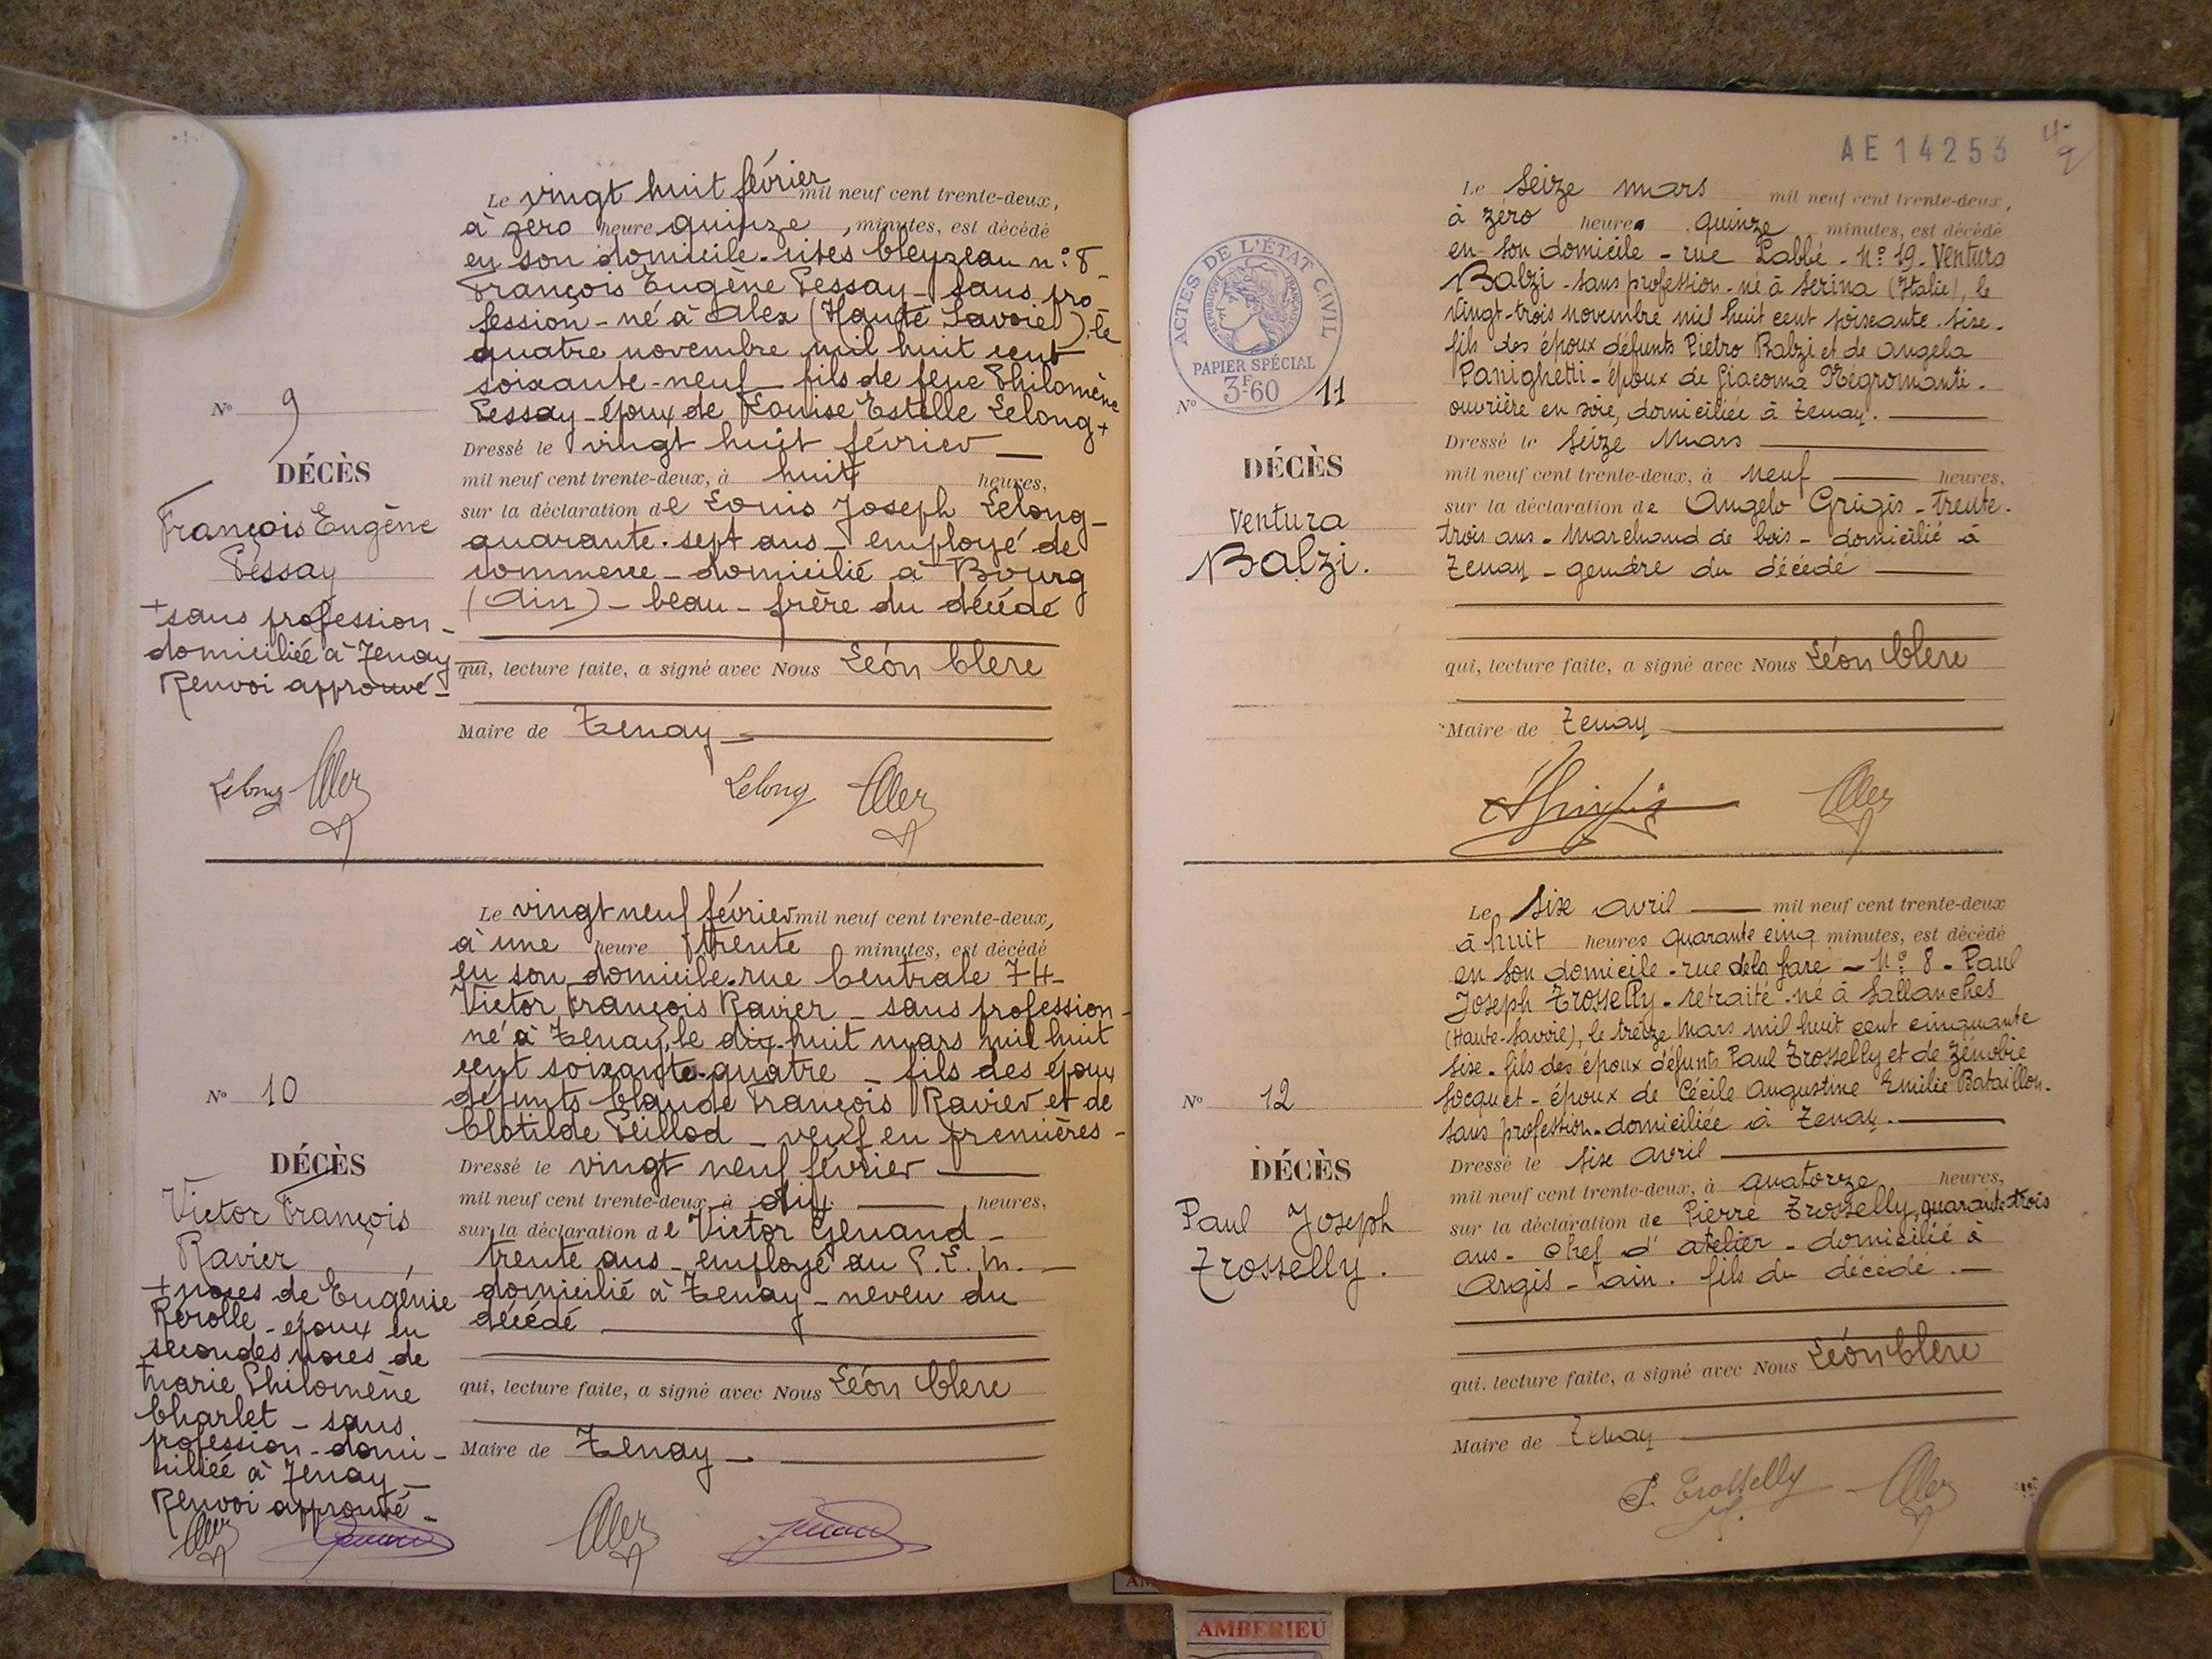 Le vingt huit février mil neuf cent trente-deux,
à zéro heure quinze, minutes, est décédé
en son domicile - cités Cleyzeau n° 8 -
François Eugène Pessay - sans pro
fession - né à Alex (Haute Savoie), le
quatre novembre mil huit cent
soixante-neuf - fils de feue Philomène
Pessay - époux de Louise Estelle Lelong +
Dressé le vingt huit février
mil neuf cent trente-deux, à huit heures,
sur la déclaration de Louis Joseph Lelong -
quarante-sept ans - employé de
commerce - domicilié à Bourg
(Ain) - beau-frère du décédé
qui, lecture faite, a signé avec Nous Léon Clerc
Maire de Tenay
N° 9
DÉCÈS
François Eugène
Pessay
+ sans profession -
domiciliée à Tenay
Renvoi approuvé -
Lelong
Lelong
Le vingt neuf février mil neuf cent trente-deux,
à une heure trente minutes, est décédé
en son domicile - rue Centrale 74 -
Victor François Ravier - sans profession -
né à Tenay, le dix-huit mars mil huit
cent soixante-quatre - fils des époux
défunts Claude François Ravier et de
Clotilde Peillod - veuf en premières -
Dressé le vingt neuf février
mil neuf cent trente-deux, à dix heures,
sur la déclaration de Victor Genand -
trente ans - employé au P.L.M. -
domicilié à Tenay - neveu du
décédé
qui, lecture faite, a signé avec Nous Léon Clerc
Maire de Tenay -
N° 10
DÉCÈS
Victor François
Ravier
+ noces de Eugénie
Rérolle - époux en
secondes noces de
+ Marie Philomène
Charlet - sans
profession - domi-
ciliée à Tenay -
Renvoi approuvé -
AE 14253
Le seize mars mil neuf cent trente-deux,
à zéro heures quinze minutes, est décédé
en son domicile - rue Labbé - N° 19 - Ventura
Balzi - sans profession - né à Serina (Italie), le
vingt-trois novembre mil huit cent soixante-sixe -
fils des époux défunts Pietro Balzi et de Angela
Panighetti - époux de Giacoma Négromanti -
ouvrière en soie, domiciliée à Tenay.
Dressé le seize Mars
mil neuf cent trente-deux, à neuf heures,
sur la déclaration de Angelo Grigis - trente-
trois ans - Marchand de bois - domicilié à
Tenay - gendre du décédé
qui, lecture faite, a signé avec Nous Léon Clerc
Maire de Tenay
ACTES DE L'ÉTAT CIVIL
RÉPUBLIQUE FRANÇAISE
PAPIER SPÉCIAL
3F60
N° 11
DÉCÈS
Ventura
Balzi.
Le Sixe avril mil neuf cent trente-deux
à huit heures quarante cinq minutes, est décédé
en son domicile - rue de la gare - N° 8 - Paul
Joseph Trosselly - retraité - né à Sallanches
(Haute-Savoie), le treize Mars mil huit cent cinquante
sixe - fils des époux défunts Paul Trosselly et de Zénobie
Socquet - époux de Cécile Augustine Emilie Bataillon -
sans profession - domiciliée à Tenay.
Dressé le sixe avril
mil neuf cent trente-deux, à quatorze heures,
sur la déclaration de Pierre Trosselly, quarante trois
ans - chef d'atelier - domicilié à
Argis - Ain - fils du décédé. -
qui, lecture faite, a signé avec Nous Léon Clerc
Maire de Tenay
P. Trosselly
N° 12
DÉCÈS
Paul Joseph
Trosselly.
AMBERIEU